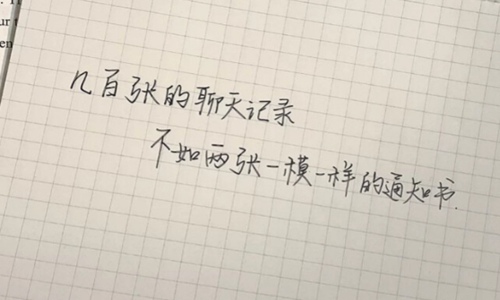 ur t
en
几百张的聊天记录
不如两张一模一样的通知书.